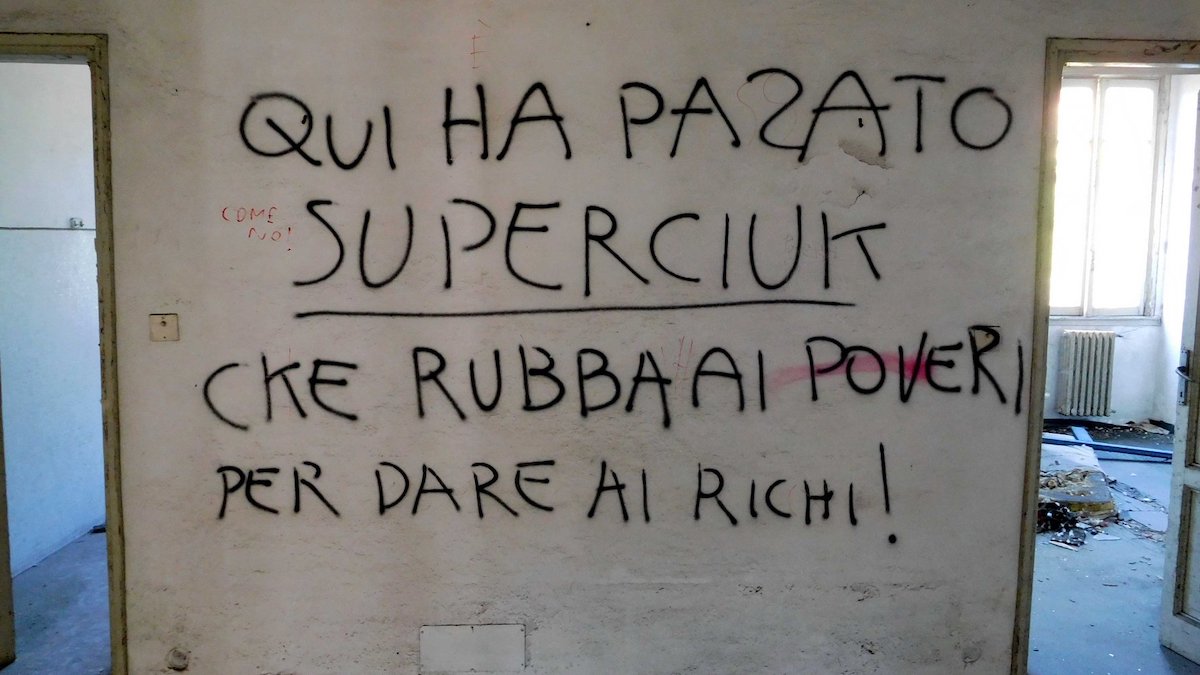 È
QUI HA PASATO
COME
NO!
SUPERCIUK
CKE RUBBA AI POVERI
PER DARE AI RICHI!